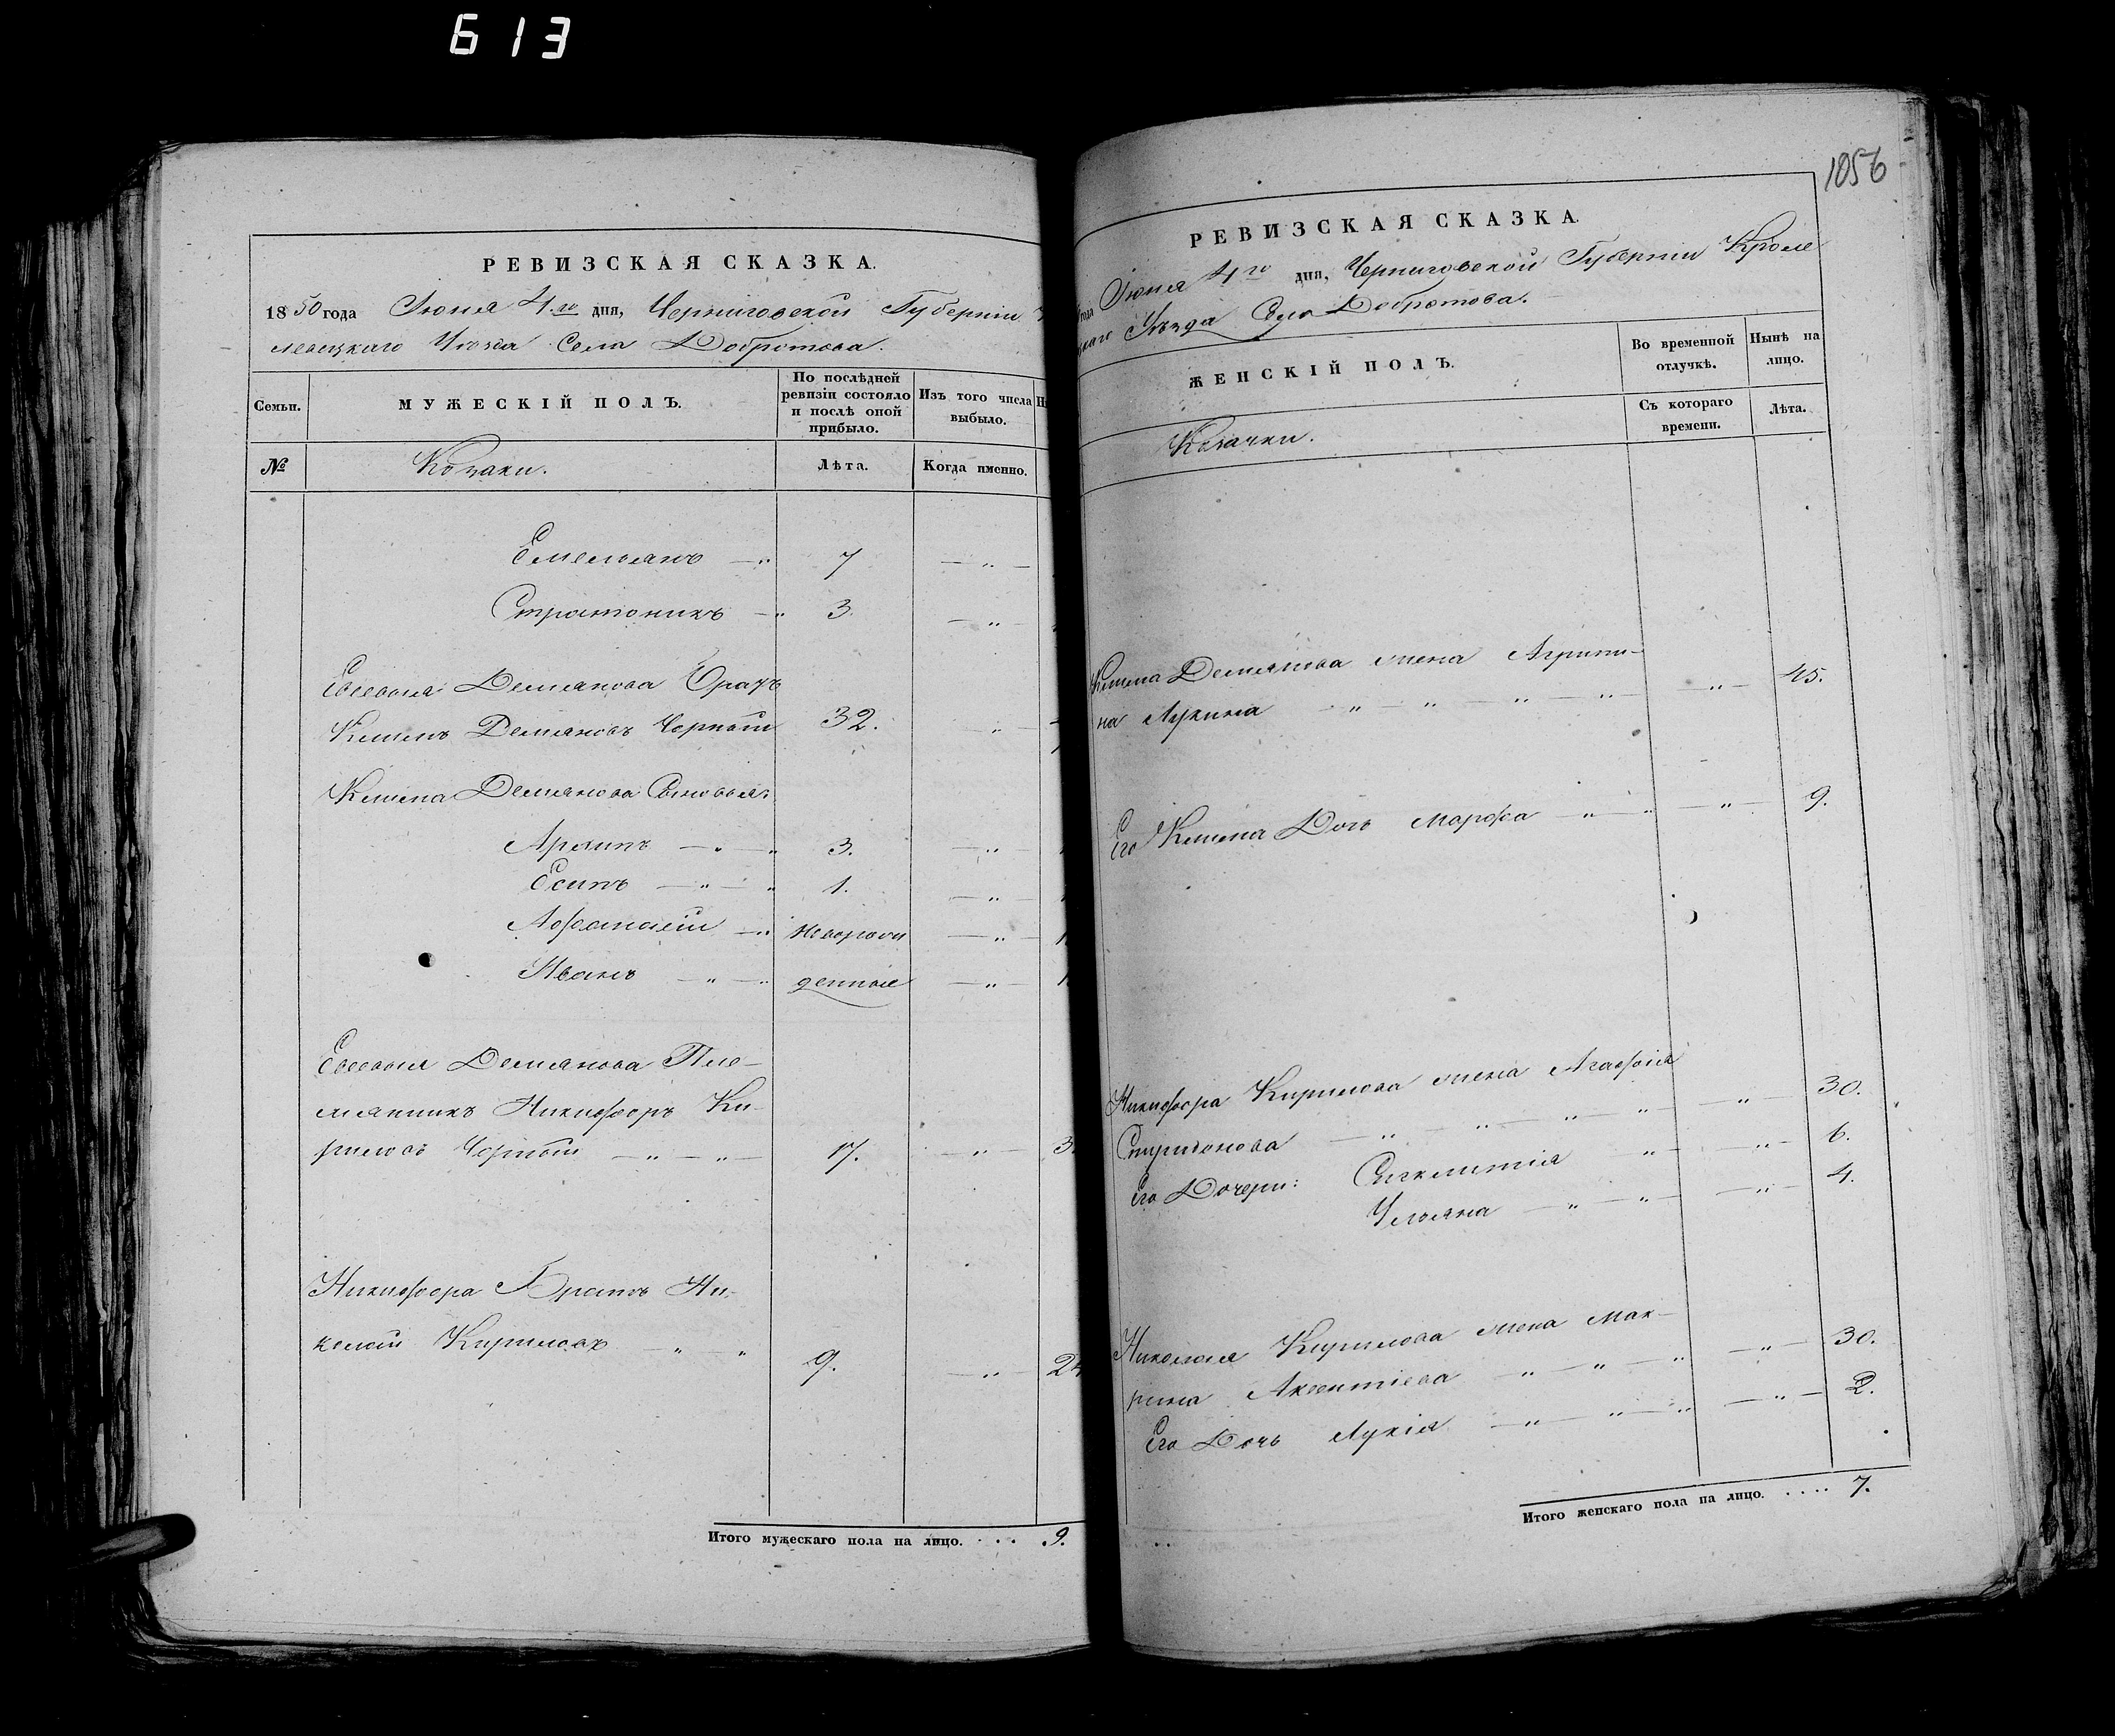 613
РЕВИЗСКАЯ СКАЗКА.
1850 года Іюня 4го дня, Черниговской Губерніи
левецкаго Уѣзда Села Добротова.
Семьи.
МУЖЕСКІЙ ПОЛЪ.
По послѣдней
ревизіи состояло
и послѣ оной
прибыло.
Изъ того числа
выбыло.
№
Козаки.
Лѣта.
Когда именно.
Емельянъ — „ 7 — „ —
Стратоникъ — „ 3. — „ —
Евсевия Демянова Братъ
Клименъ Демяновъ Черный 32. „ —
Климена Демянова Сыновья:
Архипъ — „ — „ 3. — „ —
Есипъ — „ — „ 1. — „ —
Афанасій — „ новорож — „ —
Иванъ — „ — „ денные — „ —
Евсевия Демянова Пле-
мянникъ Никифоръ Ки-
риловъ Черный — „ — „ — 17. — „ — 3
Никифора Братъ Ни-
колай Кириловъ — „ — „ 9. — „ — 24
Итого мужескаго пола на лицо. . . . 9.
1056
РЕВИЗСКАЯ СКАЗКА.
года Іюня 4го дня, Черниговской Губерніи Кроле
каго Уѣзда Села Добротова.
ЖЕНСКІЙ ПОЛЪ.
Во временной
отлучкѣ.
Нынѣ на
лицо.
Съ котораго
времени.
Лѣта.
Козачки.
Климена Демянова жена Агрипи-
на Лукина — „ — „ — „ — „ — „ — 45.
Его Климена Дочь Марфа — „ — „ — „ — 9.
Никифора Кирилова жена Агафія
Спиридонова — „ — „ — „ — „ — „ — 30.
Его Дочери: Синклитія „ — „ — 6.
Ульяна — „ — „ — „ — 4.
Николая Кирилова жена Мак-
рина Аксентіева — „ — „ — „ — „ — 30.
Его Дочь Лукія — „ — „ — „ — „ — 2.
Итого женскаго пола на лицо. . . . . 7.